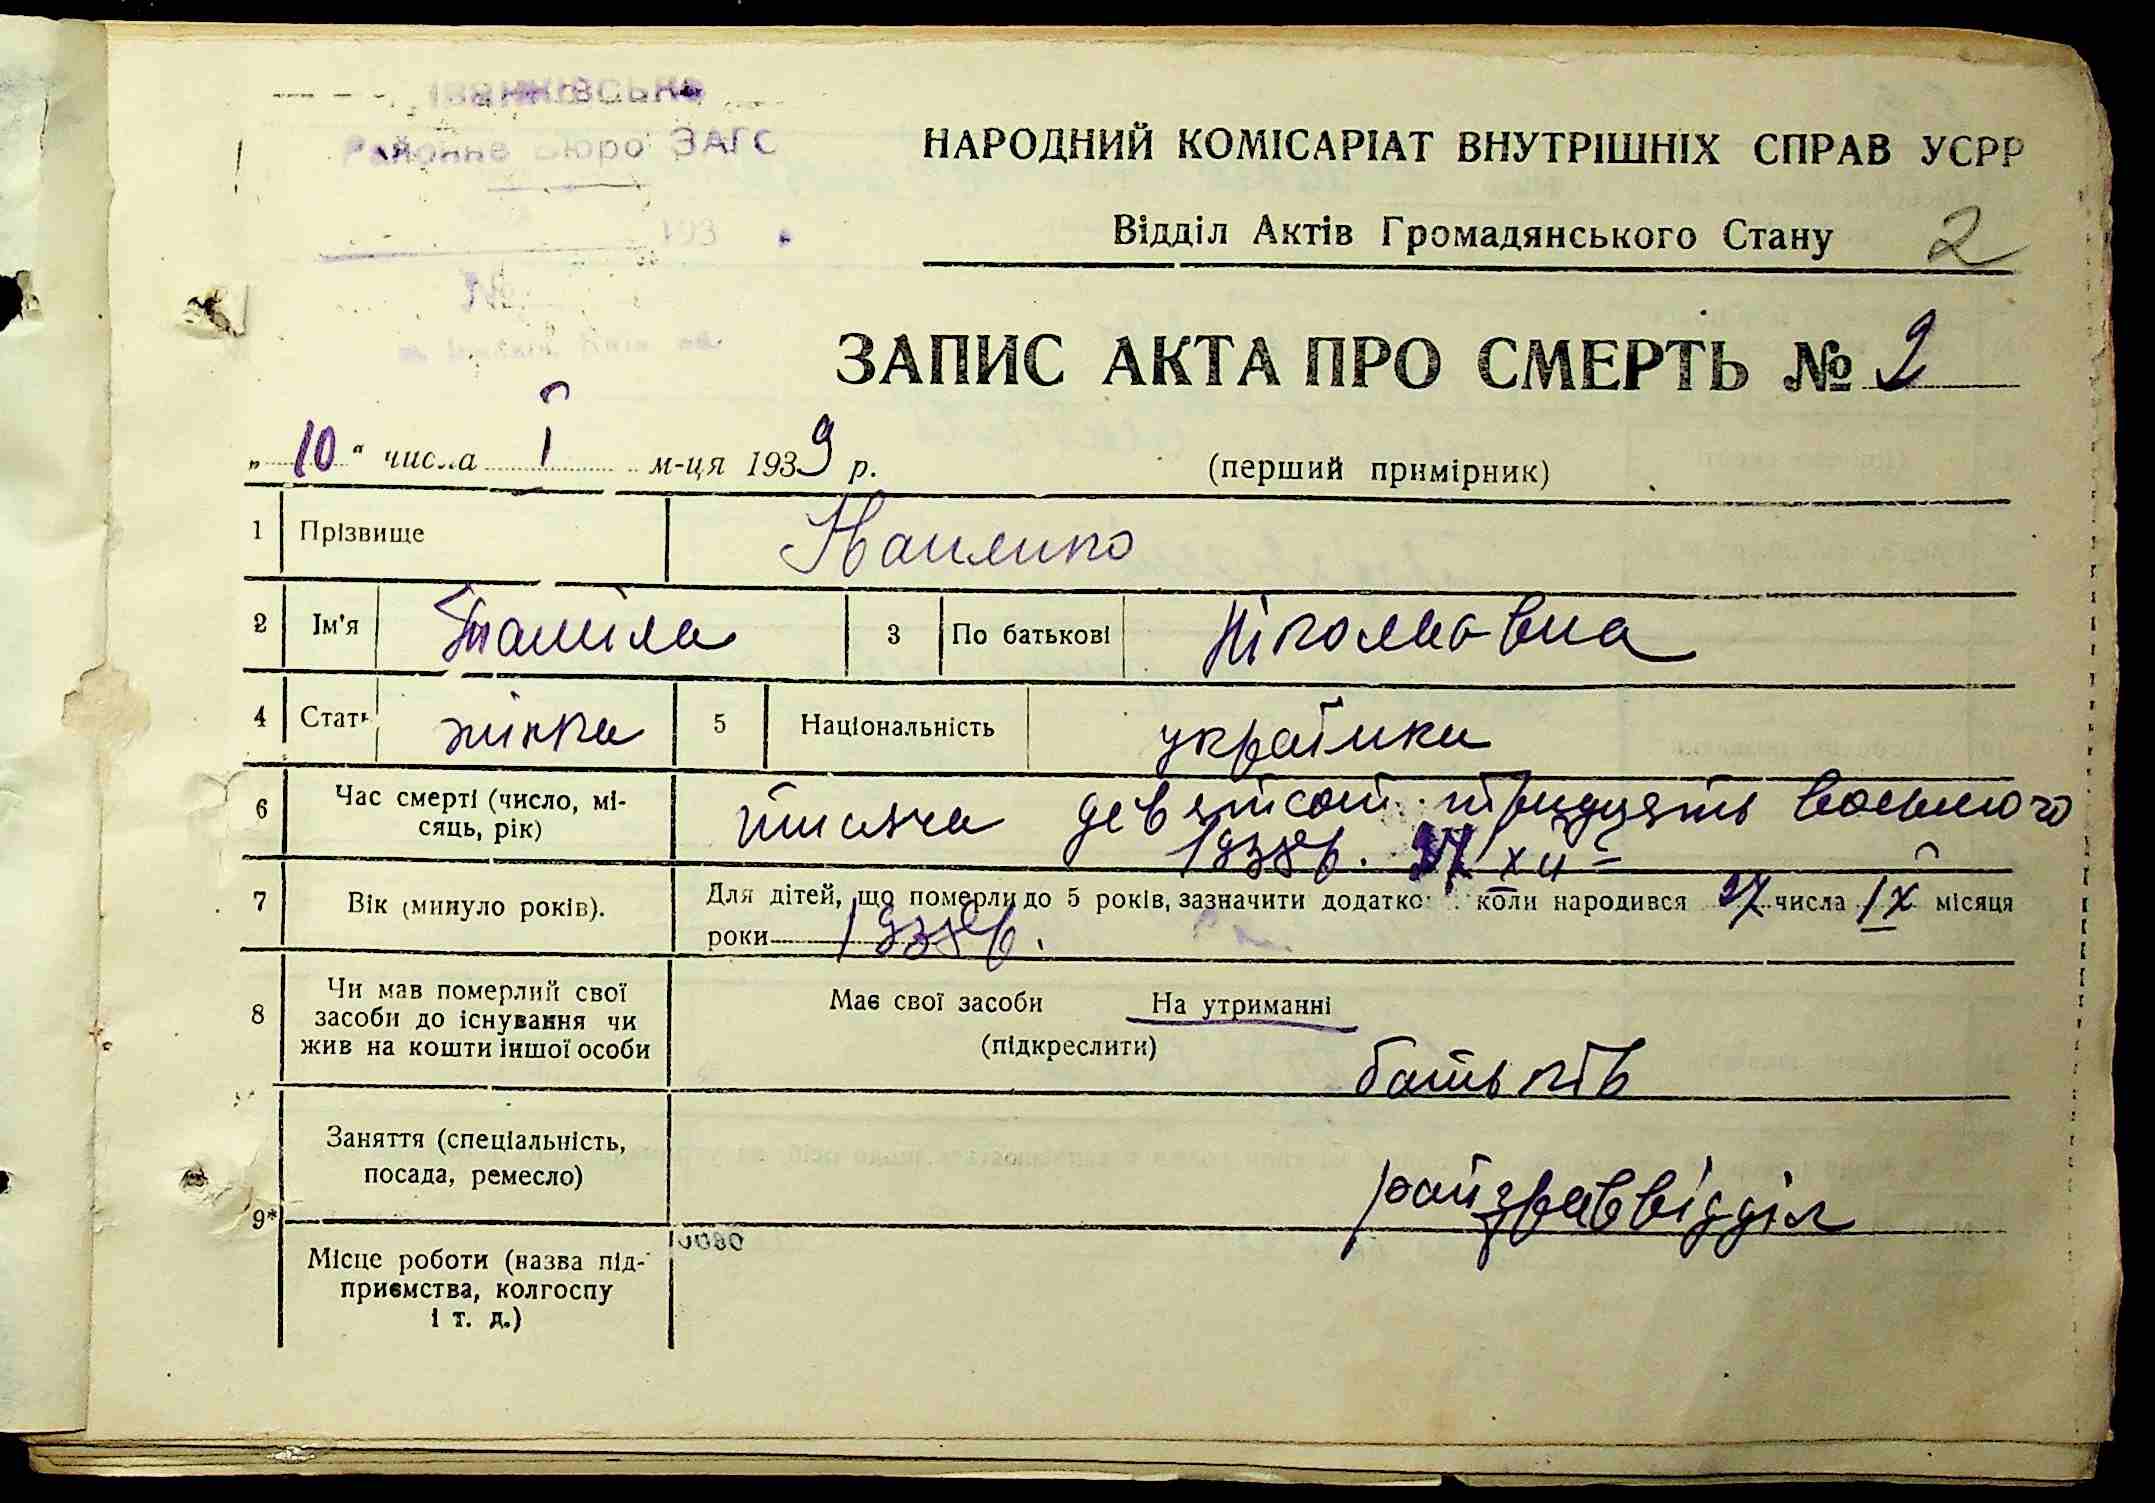 ІВАНКІВСЬКЕ
Районне Бюро ЗАГС
193
№
НАРОДНИЙ КОМІСАРІАТ ВНУТРІШНІХ СПРАВ УСРР
Відділ Актів Громадянського Стану 2
ЗАПИС АКТА ПРО СМЕРТЬ № 2
„ 10 “ числа І м-ця 1939 р. (перший примірник)
1 Прізвище
2 Ім'я 3 По батькові Ніколаївна
4 Стать жінка 5 Національність українка
6 Час смерті (число, місяць, рік) тисяча девятсот тридцять восьмого
1938р. 27 XII
7 Вік (минуло років). Для дітей, що померли до 5 років, зазначити додатко: коли народився 27 числа IX місяця
роки 1938р.
8 Чи мав померлий свої засоби до існування чи жив на кошти іншої особи Має свої засоби На утриманні
(підкреслити)
батьків
9* Заняття (спеціальність, посада, ремесло) райздраввідділ
Місце роботи (назва підприємства, колгоспу і т. д.)